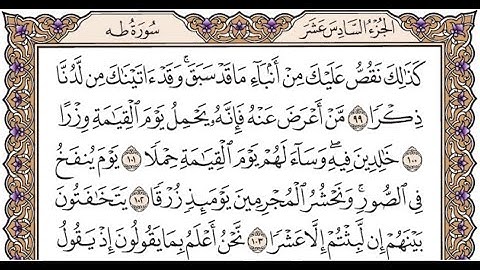 الجزء السادس عشر سورة طه
كَذَٰلِكَ نَقُصُّ عَلَيْكَ مِنْ أَنۢبَآءِ مَا قَدْ سَبَقَ ۚ وَقَدْ ءَاتَيْنَٰكَ مِن لَّدُنَّا
ذِكْرًا ٩٩ مَّنْ أَعْرَضَ عَنْهُ فَإِنَّهُۥ يَحْمِلُ يَوْمَ ٱلْقِيَٰمَةِ وِزْرًا
١٠٠ خَٰلِدِينَ فِيهِ ۖ وَسَآءَ لَهُمْ يَوْمَ ٱلْقِيَٰمَةِ حِمْلًا ١٠١ يَوْمَ يُنفَخُ
فِى ٱلصُّورِ ۚ وَنَحْشُرُ ٱلْمُجْرِمِينَ يَوْمَئِذٍ زُرْقًا ١٠٢ يَتَخَٰفَتُونَ
بَيْنَهُمْ إِن لَّبِثْتُمْ إِلَّا عَشْرًا ١٠٣ نَّحْنُ أَعْلَمُ بِمَا يَقُولُونَ إِذْ يَقُولُ